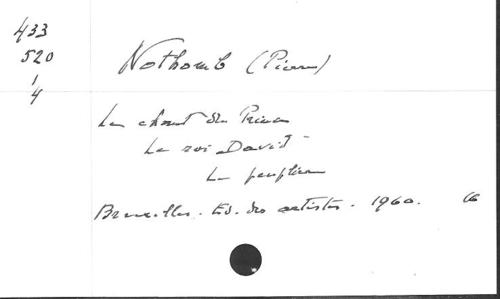 433
520
1
4
Nothomb (Pierre)
Le chant du Prince
Le roi David
Le peuplier
Bruxelles. Ed. des artistes. 1960. 16